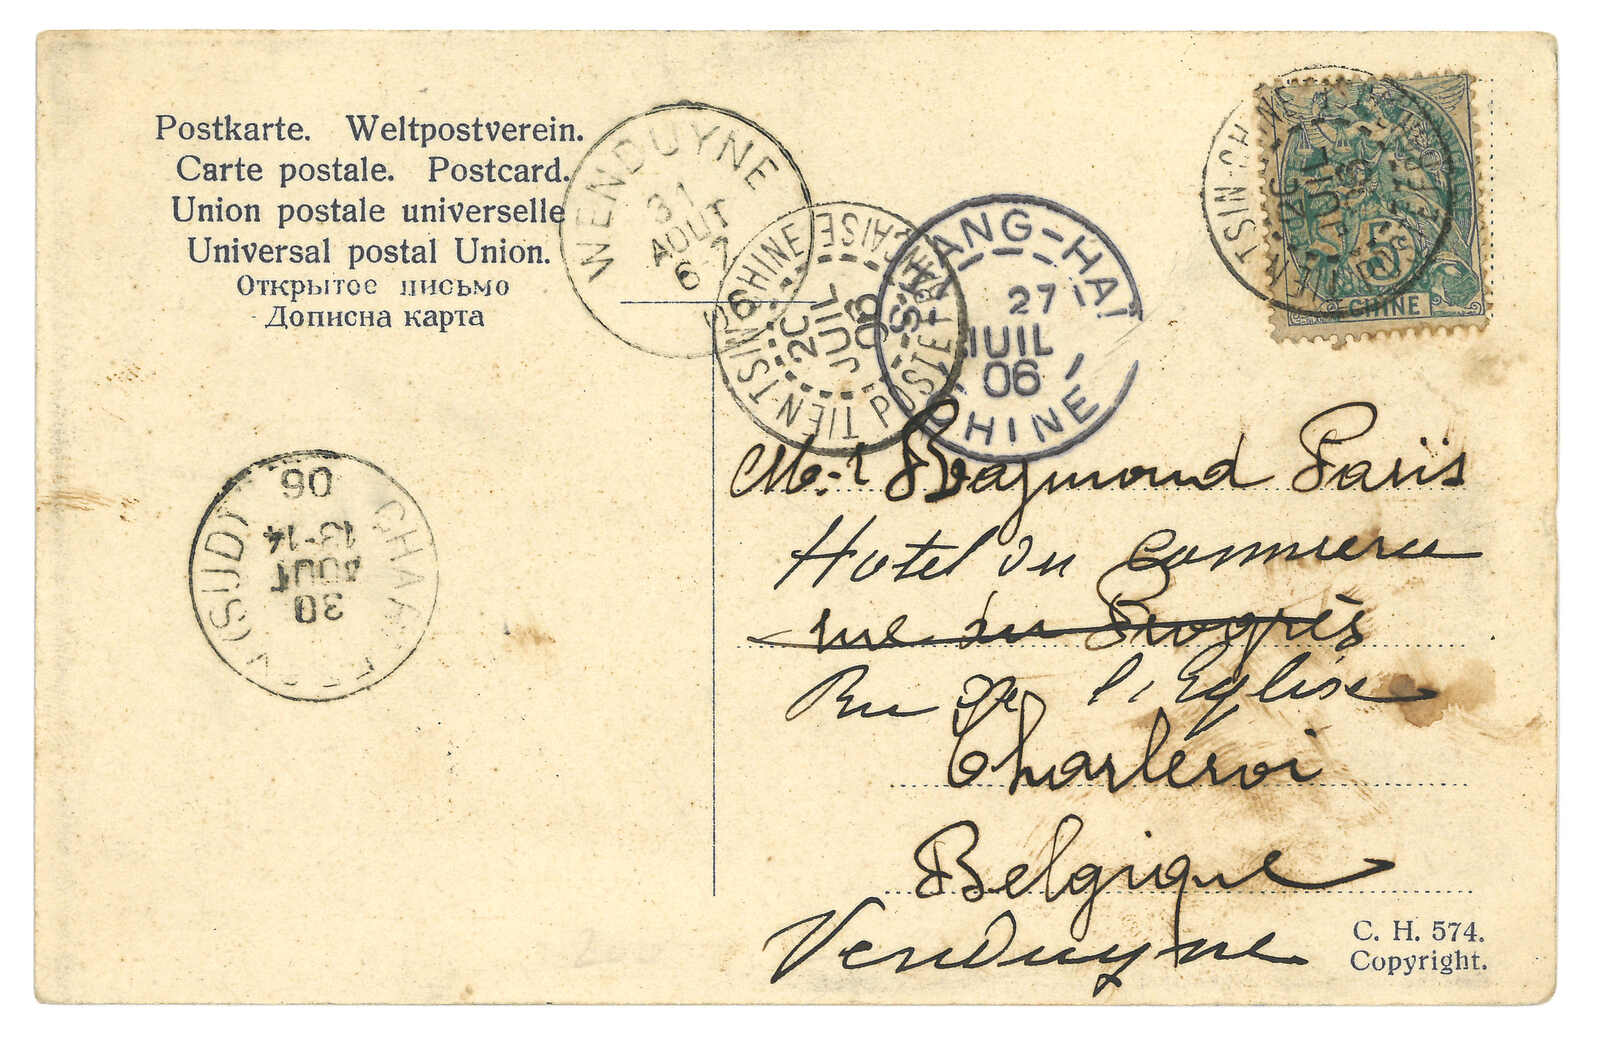 Postkarte. Weltpostverein.
Carte postale. Postcard.
Union postale universelle
Universal postal Union.
Открытое письмо
Дописна карта
WENDUYNE
31
AOUT
6-7
TIEN-TSIN CHINE
POSTE FRANÇAISE
2C
JUIL
06
SHANG-HAI
27
JUIL
06
CHINE
TIEN-TSIN-CHINE
JUIL
06
5
CHINE
06
13-14
AOUT
30
(SUD)
M.r Raymond Paris
Hotel du Commerce
rue du Progrès
Rue de l'Eglise
Charleroi
Belgique
Venduyne
C. H. 574.
Copyright.